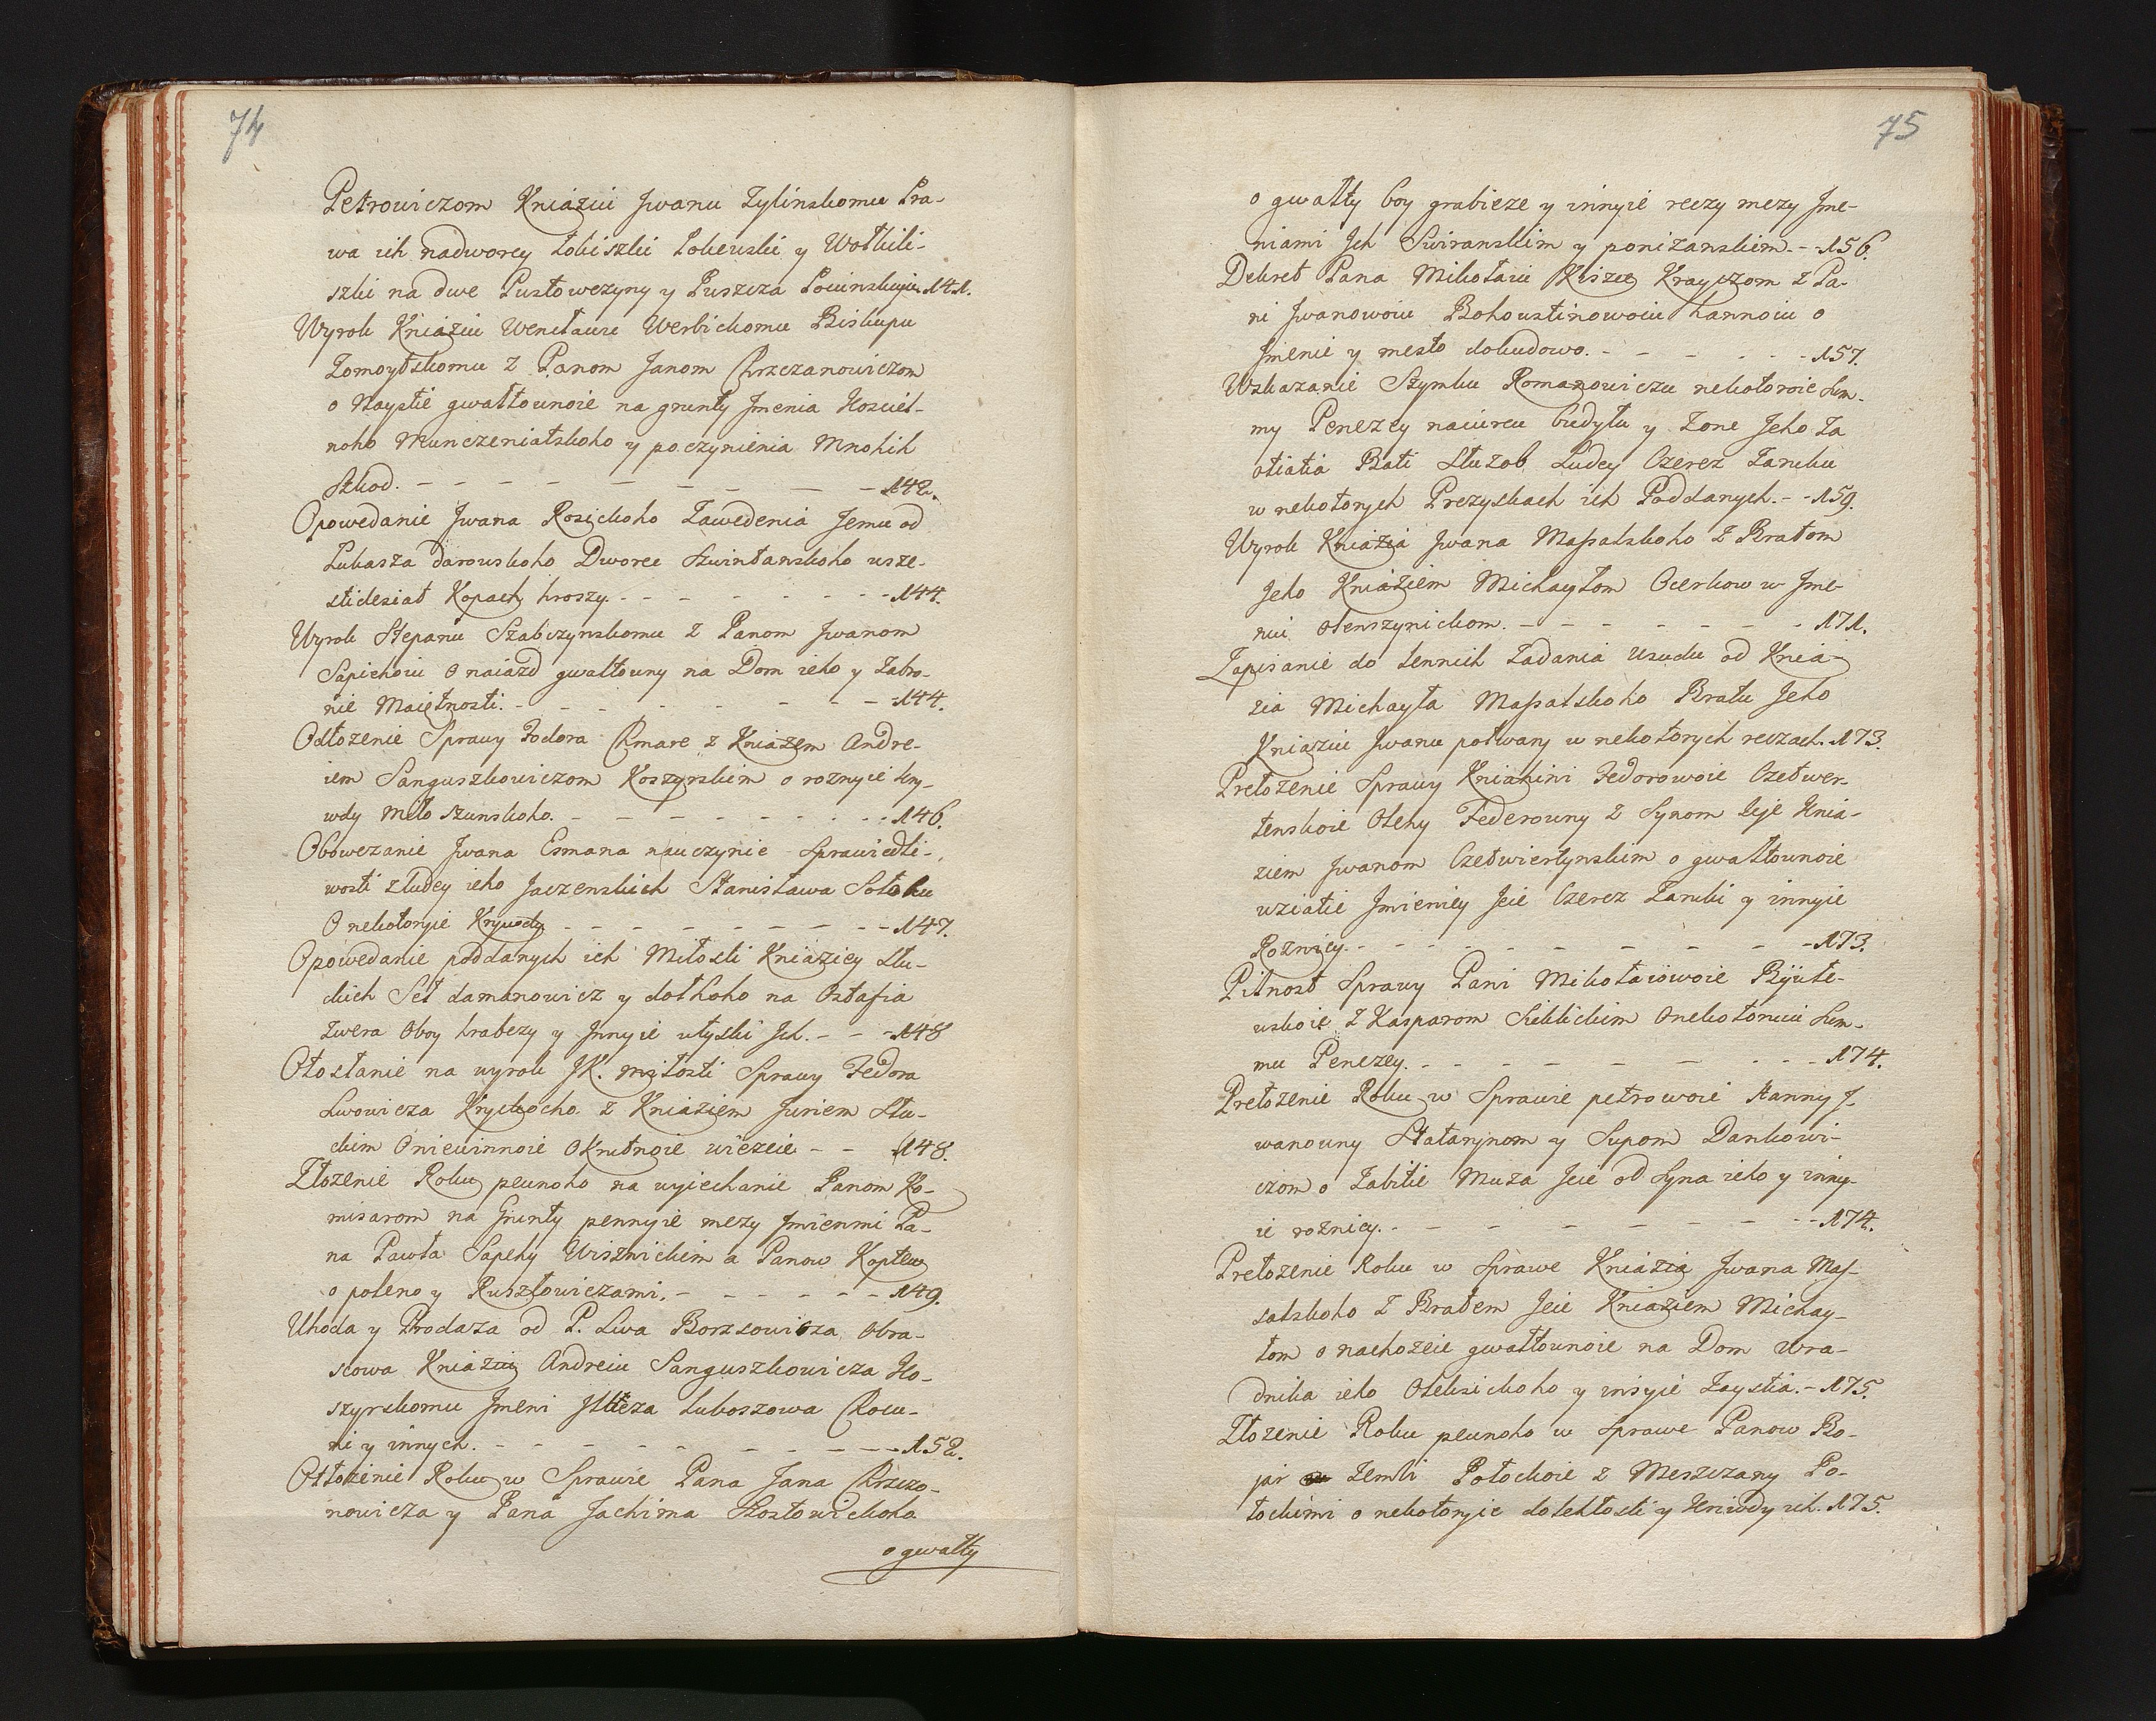 74
Petrowiczom Kniaziu Jwanu Zylinskomu Pra-
wa ich nadworcy Łobiszki Łokeuski y Wołkili-
szki na dwe Pustowczyny y Puszcza 141.
Wyrok Kniaziu Wencławu Werbickomu Biskupu
Zomoytskomu z Panom Janom Chrzczanowiczom
o Naystie gwałtounoie na grunty Jmenia Kosciel-
noho Munczeniatskoho y poczynienia Mnohih
Szkod. - - - 142.
Opowedanie Jwana Rosickoho Zawedenia Jemu od
Łukasza Darouskoho Dworca Szwintanskoho wsze-
stidesiat Kopach hroszy. - - - 144.
Wyrok Stepanu Szabczynskomu z Panom Jwanom
Sapichoiu o naiazd gwałtouny na Dom ieho y Zabra-
nie Maiętnosti. - - - 144.
Odłozenie Sprawy Fodora Chmare z Kniazem Andre-
iem Sanguszkowiczom Koszyrskim o roznyie kry-
wdy Miłoszunskoho. - - - 146.
Obowezanie Jwana Esmana nauczynie Sprawiedli-
wosti z Ludey ieho Jaczenskich Stanisława Sołohu
O nekotoryie Krywdy - - - 147.
Opowedanie poddanych ich Miłosti Kniaziey Słu-
ckich Set damanowicz y dołhoho na Ostafia
Zwera Oboy hrabezy y Jnnyie utyski Jch. - - - 148
Otosłanie na wyrok JK. miłosti Sprawy Fedora
Lwowicza Kryckocho z Kniaziem Juriem Słu-
ckim O niewinnoie Okrutnoie wiezeie - - 148.
Złozenie Roku pewnoho na wyiechanie Panom Ko-
misarom na Grunty pennyie mezy Jmienmi Pa-
na Pawła Sapehy Wisznickim a Panow Koptew
o poleno y Ruszłowiczami. - - - 149.
Uhoda y Prodaza od P. Lwa Borzsowicza Obra-
scowa Kniaziu Andreiu Sanguszkowicza Ko-
szyrskomu Jmeni Luboszowa Chocu-
ni y innych. - - - 152.
Otłozenie Roku w Sprawie Pana Jana Chrzczo-
nowicza y Pana Jachima Chostowickoho
o gwałty
75
o gwałty boy grabieze y innyie reczy mezy Jme-
niami Jch Swiranskim y ponizanskiem. - - 156.
Dekret Pana Mikołaiu Kisze Krayczom z Pa-
ni Jwanowoiu Bohoustinowoiu hannoiu o
Jmenie y mesto dokudowo. - - - 157.
Wskazanie Szymku Romanowiczu nekotoroie Sum-
my Penezey naiureu budyłu y Zone Jeho Za
otiatia Bati Słuzob Ludey Czerez Zamku
w nekotorych Prezyskach ich Poddanych. - - 159.
Wyrok Kniazia Jwana Massalskoho z Bratom
Jeho Kniaziem Michayłom Ocerkow w Jme-
niu Olenszynickom. - - - 171.
Zapisanie do Zadania Usudu od Knia-
zia Michayła Massalskoho Bratu Jeho
Kniaziu Jwanu połwary w nekotorych reczach. 173.
Prełozenie Sprawy Kniahini Fedorowoie Czetwer-
tenskoie Oleny Federowny z Synom Jeje Knia-
ziem Jwanom Czetwiertynskim o gwałtownoie
uziatie Jmieniey Jeie Czerez Zamki y innyie
Roznicy. - - - 173.
Pilnost Sprawy Pani Mikołaiowoie Byiute-
uskoie z Kasparom Siklickim O nekotoruiu Sum-
mu Penezey. - - - 174.
Prełozenie Roku w Sprawie petrowoie Hanny J-
wanowny Statarynom y Supom Dankowi-
czom o Zabitie Muza Jeie od Syna ieho y inny-
ie roznicy. - - - 174.
Prełozenie Roku w Sprawe Kniazia Jwana Mas-
salskoho z Bratem Jeie Kniaziem Michay-
łom o nachozeie gwałtownoie na Dom wra-
dnika ieho Oleksickoho y insyie Zaystia. - 175.
Złozenie Roku pewnoho w Sprawe Panow Bo-
jar Zemli Połockoie z Meszczany Po-
łockimi o nekotoryie doleh­łosti y Kriwdy ich. 175.